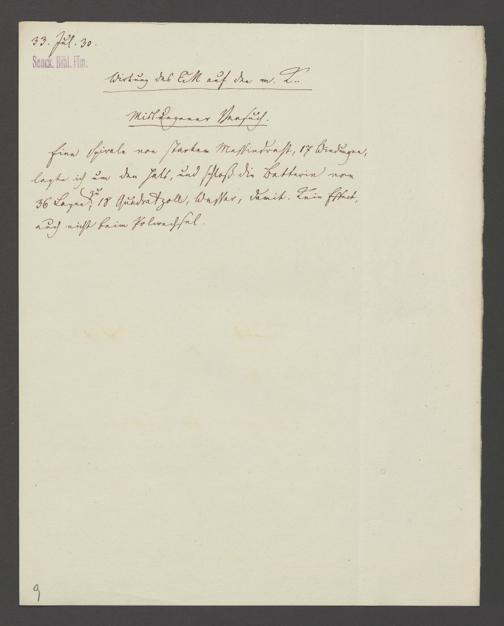 33. Jul. 30.
Senck. Bibl. Ffm.
Wirkung des EM auf den m. K..
Misslungener Versuch.
Eine Spirale von starkem Messindraht, 17 Windungen,
legte ich um den Hals, und schloß die Batterie von
36 Lagen, zu 18 Quadratzoll, Wasser, damit. Kein Effect,
auch nicht beim Polwechsel.
9